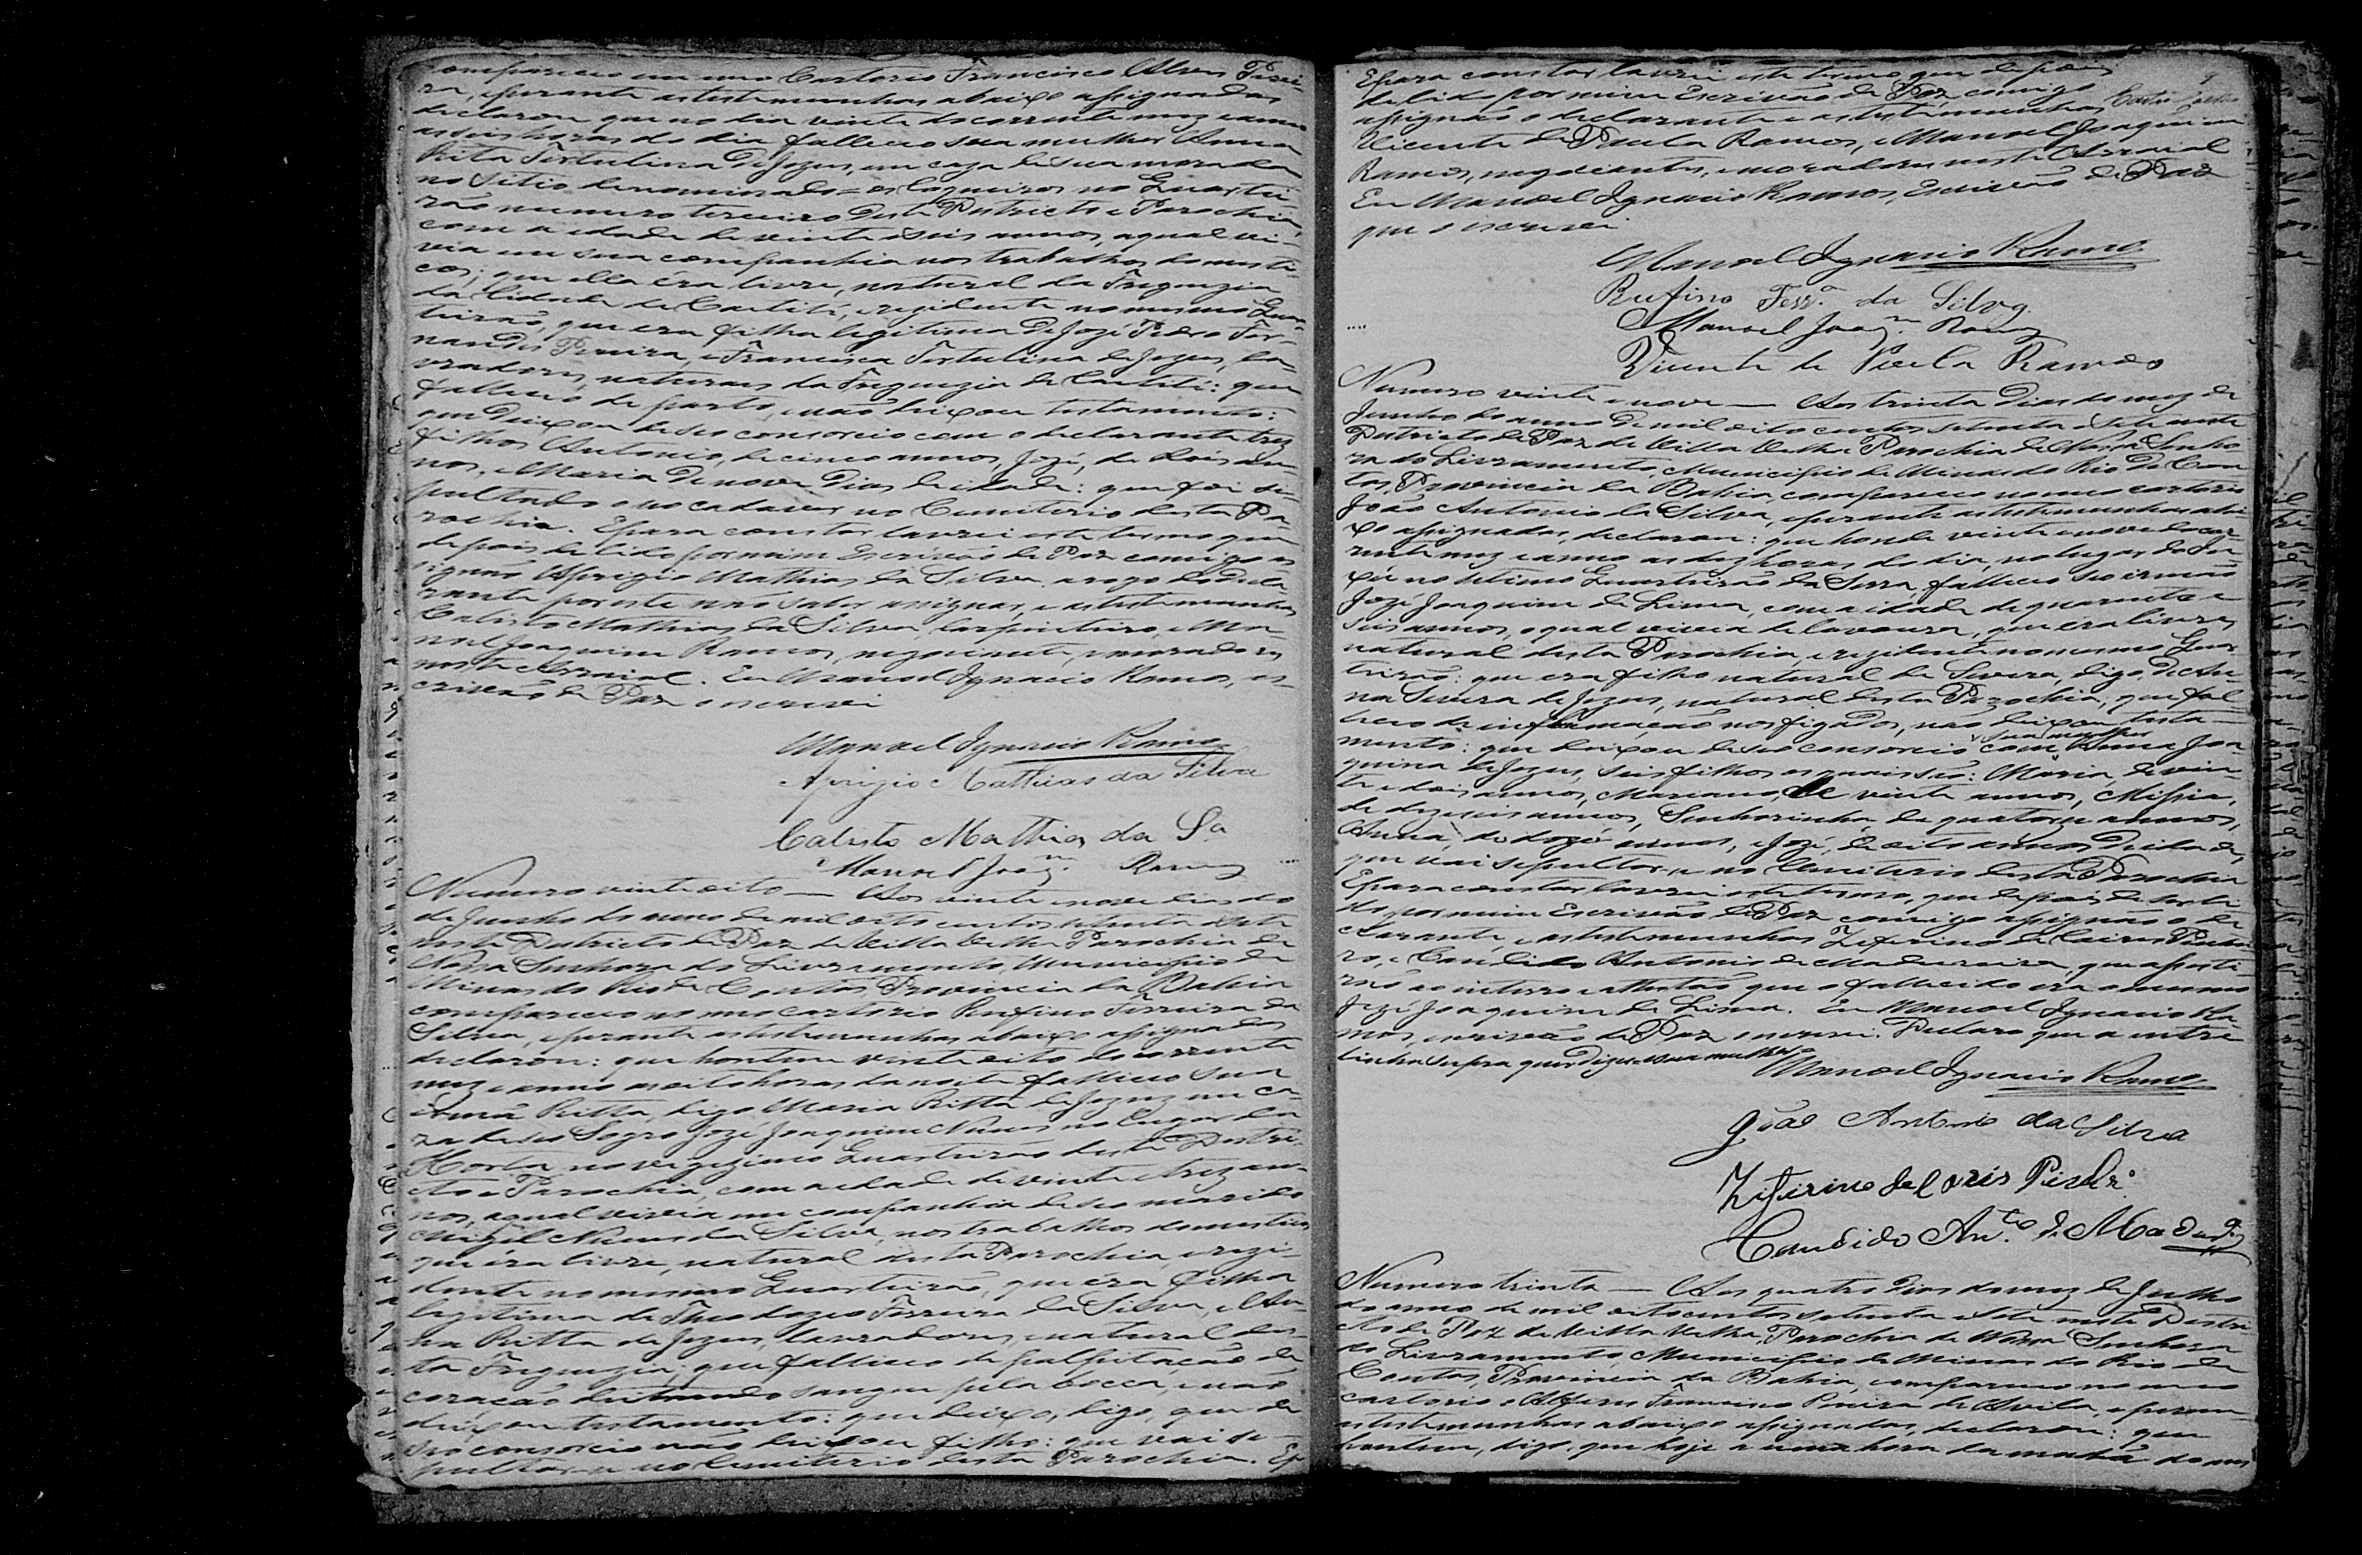 compareceu em meo Cartorio Francisco Alves Perei-
ra, e perante as testemunhas abaixo assignadas
declarou que no dia vinte do corrente mez e anno
as seis horas do dia falleceo sua mulher Anna
Rita Tertulina de Jezus, em caza de sua morada
no Sitio denominado = os Coqueiros no Quartei-
rão numero terceiro deste Districto e Parochia,
com a idade de vinte e seis annos, a qual vi-
via em sua companhia nos trabalhos domesti-
cos; que ella éra livre, natural da Freguezia
da Cidade de Caetité, e rezidente no mesmo Quar-
teirão, que era filha legitima de Jozé Pedro Fer-
nandes Pereira, e Francisca Tertulina de Jezus, la-
vradores, naturaes da Freguezia de Caetité: que
falleceo de parto, e não deixou testamento:
que deixou de seo consorcio com o declarante trez
filhos Antonio, de cinco annos, Jozé, de dois an-
nos, e Maria de nove dias de idade: que foi se-
pultado o seo cadaver no Cemiterio desta Pa-
rochia. E para constar lavrei este termo que
depois de lido por mim Escrivão de Paz comigo as-
signão Aprigio Mathias da Silva, a rogo do decla-
rante por este não saber assignar, e as testemunhas
Calisto Mathias da Silva, carpinteiro, e Ma-
noel Joaquim Ramos, negociante, e moradores
neste Arraial. Eu Manoel Ignacio Ramos, es-
crivão de Paz o escrevi
Manoel Ignacio Ramos
Aprigio Mathias da Silva
Calisto Mathias da Sª
Manoel Joaqm Ramos
Numero vinte oito — Aos vinte e nove dias do
de Junho do anno de mil oito centos setenta e sete
neste Districto de Paz de Villa Velha Parochia de
Nossa Senhora do Livramento, Municipio de
Minas do Rio de Contas, Provincia da Bahia
compareceo no meo cartorio Rufino Ferreira da
Silva, e perante as testemunhas abaixo assignadas
declarou: que hontem vinte oito do corrente
mez e anno as oito horas da noite falleceo sua
irmã Ritta, digo, Maria Ritta de Jezuz em ca-
za de seo Sogro Jozé Joaquim Neves no lugar da
Horta, no vigezimo Quarteirão deste Distri-
cto e Parochia, com a idade de vinte e trez an-
nos, a qual vivia em companhia de seo marido
Neves da Silva, nos trabalhos domesticos
que éra livre, natural desta Parochia, e rezi-
dente no mesmo Quarteirão, que éra filha
legitima de Theodozio Ferreira da Silva, e An-
na Ritta de Jezus, lavradores, e natural des-
ta Freguezia, que falleceo de palpitação de
coração deitando sangue pela bocca, e não
deixou testamento: que deixo, digo, que de
seo consorcio não deixou filho: que vai se-
pultar-se no Cemiterio desta Parochia. E p
E para constar lavrei este termo que depois
de lido por mim Escrivão de Paz, comigo
assignão o declarante e as testemunhas
Vicente de Paula Ramos, e Manoel Joaquim
Ramos, negociantes, e moradores neste Arraial
Eu Manoel Ignacio Ramos, Escrivão de Paz
que o escrevi
Manoel Ignacio Ramos
Rufino Ferrª da Silva
Manoel Joaqm Ramos
Vicente de Paula Ramos
Numero vinte e nove — Aos trinta dias do mez de
Junho do anno de mil oito centos setenta e sete neste
Districto de Paz de Villa Velha Parochia de Nossa Senho-
ra do Livramento, Municipio de Minas do Rio de Con-
tas, Provincia da Bahia, compareceo no meo cartorio
João Antonio da Silva, e perante as testemunhas abai-
xo assignadas, declarou: que honde vinte e nove do cor-
rente mez e anno as dez horas do dia, no lugar do
no setimo Quarteirão da Serra, falleceo seo irmão
Jozé Joaquim de Lima, com a idade de quarenta e
seis annos, o qual vivia de lavoura, que éra livre,
natural desta Parochia, e rezidente no mesmo Quar-
teirão: que era filho natural de Severa, digo, de An-
na Severa de Jezus, natural desta Parochia; que fal-
leceo de inflamação nos figados, não deixou testa-
mento: que deixou de seo consorcio com sua mulher Anna Joa-
quina de Jezus, seis filhos os quais são: Maria de vin-
te e dois annos, Mariana, de vinte annos, Missia,
de dezeseis annos, Senhorinha de quatorze annos,
Anna, de doze annos, e Jozé, de oito annos de idade,
que vai sepultar-se no Cemiterio desta Parochia
E para constar lavrei este termo, que depois de
lido por mim Escrivão de Paz comigo assignão o de-
clarante, e as testemunhas Zeferino de Caires Pinhei-
ro, e Candido Antonio de Madureira, que assisti-
rão ao enterro e attestão que o fallecido era o mesmo
Jozé Joaquim de Lima. Eu Manoel Ignacio Ra-
mos, escrivão de Paz o escrevi. Declaro que a entre
linha supra quer dizer = sua mulher
Manoel Ignacio Ramos
João Antonio da Silva
Zeferino de Caires Pinhrº
Candido Antº de Madurª
Numero trinta — Aos quatro dias do mez de Julho
do anno de mil oito centos setenta e sete neste Distri-
cto de Paz de Villa Velha, Parochia de Nossa Senhora
do Livramento, Municipio de Minas do Rio de
Contas, Provincia da Bahia, compareceo no meo
cartorio o Alferes Francisco Pereira de Avila, e perante
as testemunhas abaixo assignadas, declarou: que
hontem, digo, que hoje a uma hora da manhã do mes